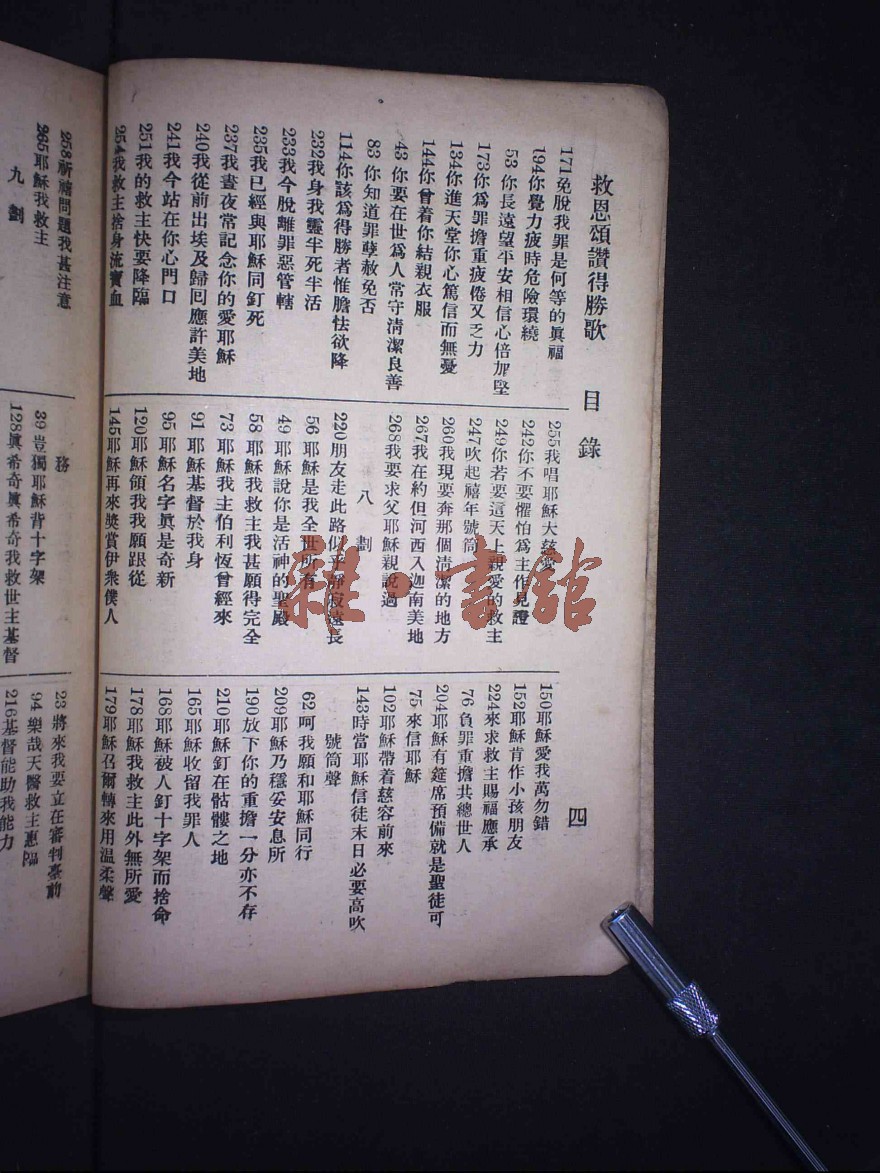 救恩頌讚得勝歌 目錄 四
171免脫我罪是何等的眞福
194你覺力疲時危險環繞
53 你長遠望平安相信心倍加堅
173你爲罪擔重疲倦又乏力
134你進天堂你心篤信而無憂
144你曾着你結親衣服
43 你要在世爲人常守淸潔良善
83 你知道罪孽赦免否
114你該爲得勝者惟膽怯欲降
232我身我靈半死半活
233我今脫離罪惡管轄
235我已經與耶穌同釘死
237我晝夜常記念你的愛耶穌
240我從前出埃及歸回應許美地
241我今站在你心門口
251我的救主快要降臨
254我救主捨身流寶血
255我唱耶穌大慈愛
242你不要懼怕爲主作見證
249你若要這天上親愛的救主
247吹起禧年號筒
260我現要奔那個淸潔的地方
267我在約但河西入迦南美地
268我要求父耶穌親說過
八 劃
220朋友走此路似乎靜寂遠長
56 耶穌是我全世所有
49 耶穌說你是活神的聖殿
58 耶穌我救主我甚願得完全
73 耶穌我主伯利恆曾經來
91 耶穌基督於我身
95 耶穌名字眞是奇新
120耶穌領我我願跟從
145耶穌再來獎賞伊衆僕人
150耶穌愛我萬勿錯
152耶穌肯作小孩朋友
224來求救主賜福應承
76 負罪重擔共總世人
204耶穌有筵席預備就是聖徒可
75 來信耶穌
102耶穌帶着慈容前來
143時當耶穌信徒末日必要高吹
號筒聲
62 呵我願和耶穌同行
209耶穌乃穩妥安息所
190放下你的重擔一分亦不存
210耶穌釘在骷髏之地
165耶穌收留我罪人
168耶穌被人釘十字架而捨命
178耶穌我救主此外無所愛
179耶穌召爾轉來用溫柔聲
258祈禱問題我甚注意
265耶穌我救主
九 劃
務
39 豈獨耶穌背十字架
128眞希奇眞希奇我救世主基督
23 將來我要立在審判臺前
94 樂哉天醫救主惠臨
216基督能助我能力
雜·書館